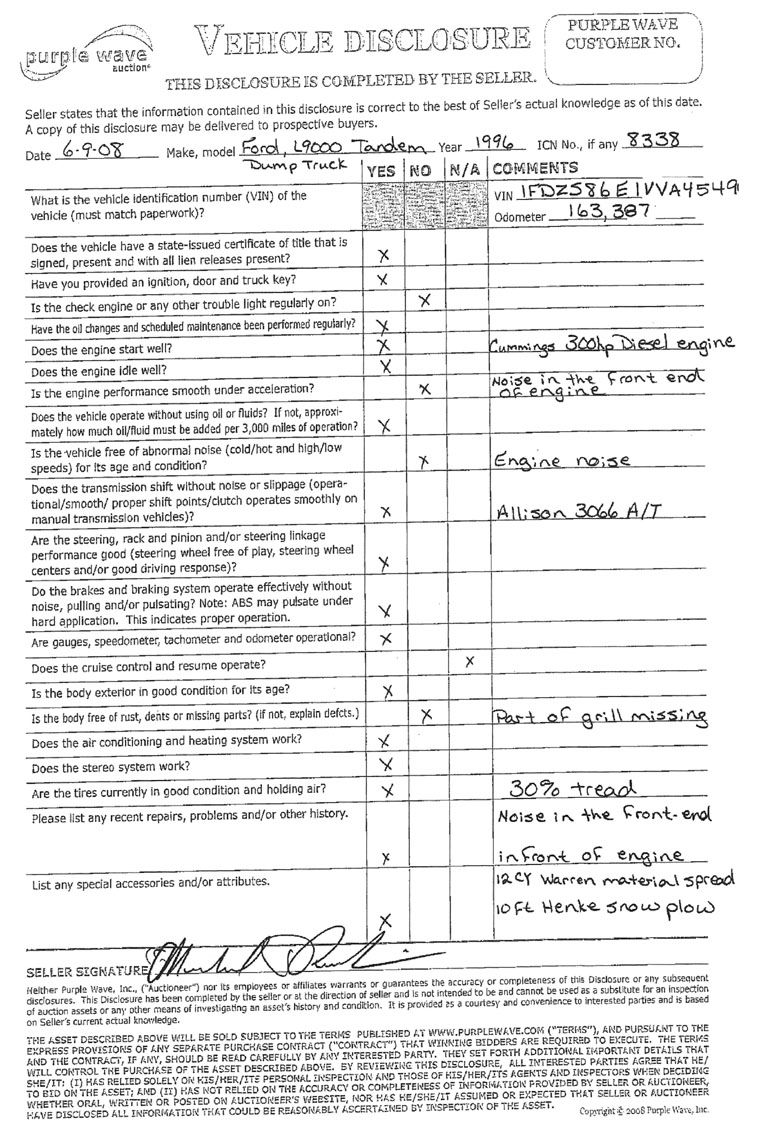 purple wave
auction®
VEHICLE DISCLOSURE
PURPLE WAVE
CUSTOMER NO.
THIS DISCLOSURE IS COMPLETED BY THE SELLER.
Seller states that the information contained in this disclosure is correct to the best of Seller's actual knowledge as of this date.
A copy of this disclosure may be delivered to prospective buyers.
Date 6-9-08 Make, model Ford, L9000 Tandem Year 1996 ICN No., if any 8338
Dump Truck
YES NO N/A COMMENTS
What is the vehicle identification number (VIN) of the
vehicle (must match paperwork)?
VIN 1FDZS86E1VVA4549
Odometer 163,387
Does the vehicle have a state-issued certificate of title that is
signed, present and with all lien releases present? X
Have you provided an ignition, door and truck key? X
Is the check engine or any other trouble light regularly on? X
Have the oil changes and scheduled maintenance been performed regularly? X
Does the engine start well? X Cummings 300hp Diesel engine
Does the engine idle well? X
Is the engine performance smooth under acceleration? X Noise in the front end
of engine
Does the vehicle operate without using oil or fluids? If not, approxi-
mately how much oil/fluid must be added per 3,000 miles of operation? X
Is the vehicle free of abnormal noise (cold/hot and high/low
speeds) for its age and condition? X Engine noise
Does the transmission shift without noise or slippage (opera-
tional/smooth/ proper shift points/clutch operates smoothly on
manual transmission vehicles)? X Allison 3066 A/T
Are the steering, rack and pinion and/or steering linkage
performance good (steering wheel free of play, steering wheel
centers and/or good driving response)? X
Do the brakes and braking system operate effectively without
noise, pulling and/or pulsating? Note: ABS may pulsate under
hard application. This indicates proper operation. X
Are gauges, speedometer, tachometer and odometer operational? X
Does the cruise control and resume operate? X
Is the body exterior in good condition for its age? X
Is the body free of rust, dents or missing parts? (if not, explain defcts.) X Part of grill missing
Does the air conditioning and heating system work? X
Does the stereo system work? X
Are the tires currently in good condition and holding air? X 30% tread
Please list any recent repairs, problems and/or other history. Noise in the front-end
X in front of engine
List any special accessories and/or attributes. 12 CY Warren material spread
X 10 Ft Henke snow plow
SELLER SIGNATURE
Neither Purple Wave, Inc., ("Auctioneer") nor its employees or affiliates warrants or guarantees the accuracy or completeness of this Disclosure or any subsequent
disclosures. This Disclosure has been completed by the seller or at the direction of seller and is not intended to be and cannot be used as a substitute for an inspection
of auction assets or any other means of investigating an asset's history and condition. It is provided as a courtesy and convenience to interested parties and is based
on Seller's current actual knowledge.
THE ASSET DESCRIBED ABOVE WILL BE SOLD SUBJECT TO THE TERMS PUBLISHED AT WWW.PURPLEWAVE.COM ("TERMS"), AND PURSUANT TO THE
EXPRESS PROVISIONS OF ANY SEPARATE PURCHASE CONTRACT ("CONTRACT") THAT WINNING BIDDERS ARE REQUIRED TO EXECUTE. THE TERMS
AND THE CONTRACT, IF ANY, SHOULD BE READ CAREFULLY BY ANY INTERESTED PARTY. THEY SET FORTH ADDITIONAL IMPORTANT DETAILS THAT
WILL CONTROL THE PURCHASE OF THE ASSET DESCRIBED ABOVE. BY REVIEWING THIS DISCLOSURE, ALL INTERESTED PARTIES AGREE THAT HE/
SHE/IT: (I) HAS RELIED SOLELY ON HIS/HER/ITS PERSONAL INSPECTION AND THOSE OF HIS/HER/ITS AGENTS AND INSPECTORS WHEN DECIDING
TO BID ON THE ASSET; AND (II) HAS NOT RELIED ON THE ACCURACY OR COMPLETENESS OF INFORMATION PROVIDED BY SELLER OR AUCTIONEER,
WHETHER ORAL, WRITTEN OR POSTED ON AUCTIONEER'S WEBSITE, NOR HAS HE/SHE/IT ASSUMED OR EXPECTED THAT SELLER OR AUCTIONEER
HAVE DISCLOSED ALL INFORMATION THAT COULD BE REASONABLY ASCERTAINED BY INSPECTION OF THE ASSET.
Copyright © 2008 Purple Wave, Inc.